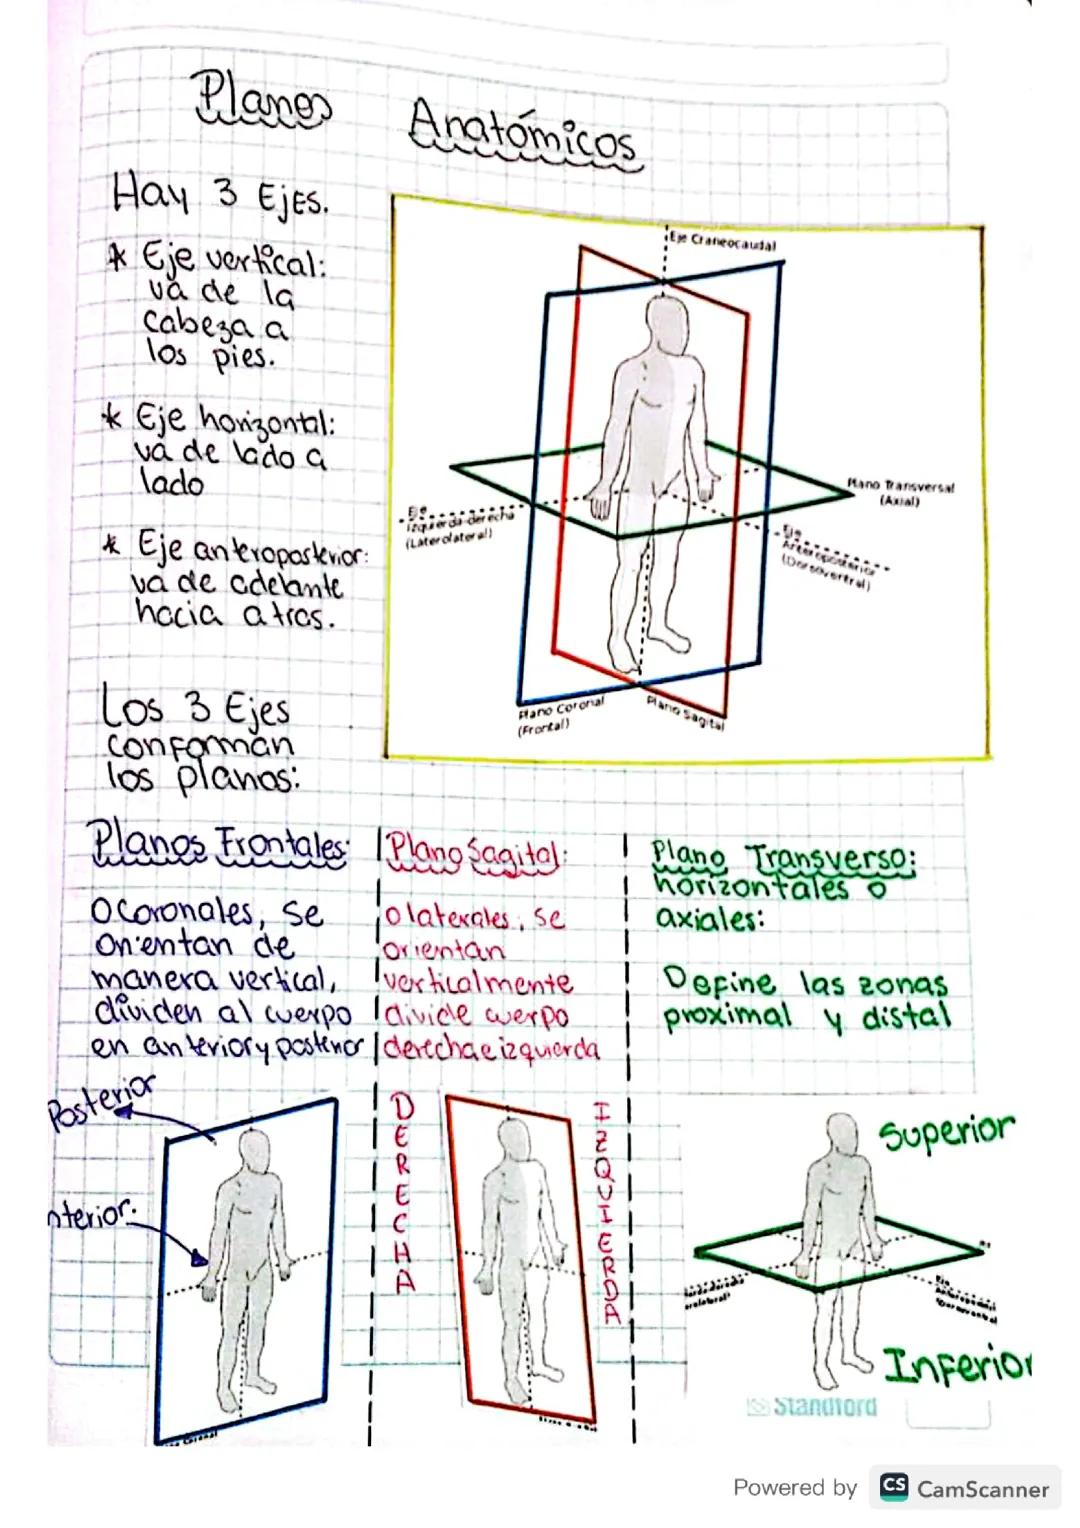 Planos Anatómicos
Hay 3 Ejes.
* Eje vertical:
va de la
cabeza a
los pies.
* Eje horizontal:
va de lado a
lado
* Eje anteroposterior:
va de adelante
hacia atras.
Eje Craneocaudal
Plano Transversal
(Axial)
Eje
Izquierda-derecha
(Laterolateral)
Eje
Anteroposterior
(Dorsoventral)
Plano Coronal
(Frontal)
Plano Sagital
Los 3 Ejes
conforman
los planos:
Planos Frontales:
O Coronales, se
orientan de
manera vertical,
dividen al cuerpo
en anterior y posterior
Plano Sagital:
o laterales, se
orientan
verticalmente
divide cuerpo
derecha e izquierda
Plano Transverso:
horizontales o
axiales:
Define las zonas
proximal y distal
Posterior
nterior.
DERECHA
IZQUIERDA
Superior
Eje
Anteroposterior
(Dorsoventral)
Inferior
Standford
Powered by CS CamScanner